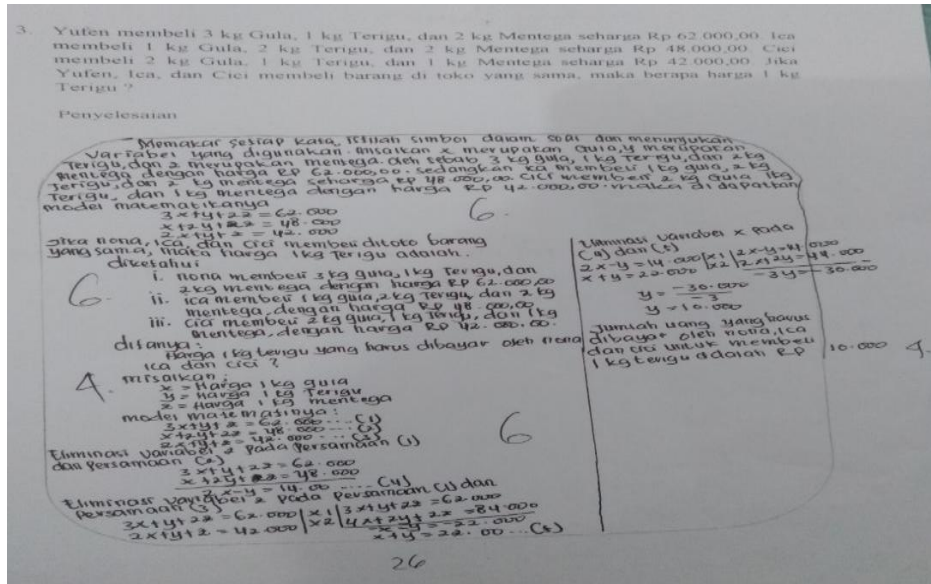 3. Yufen membeli 3 kg Gula, 1 kg Terigu, dan 2 kg Mentega seharga Rp 62.000,00. Ica
membeli 1 kg Gula, 2 kg Terigu, dan 2 kg Mentega seharga Rp 48.000,00. Cici
membeli 2 kg Gula, 1 kg Terigu, dan 1 kg Mentega seharga Rp 42.000,00. Jika
Yufen, Ica, dan Cici membeli barang di toko yang sama, maka berapa harga 1 kg
Terigu ?
Penyelesaian
Memakai setiap kata, istilah simbol dalam soal dan menunjukan
Variabel yang digunakan. misalkan x merupakan Gula, y merupakan
Terigu, dan z merupakan mentega. Oleh sebab 3 kg gula, 1 kg Terigu, dan 2 kg
mentega dengan harga RP 62.000,00. sedangkan ica membeli 1 kg gula, 2 kg
Terigu, dan 2 kg mentega seharga RP 48.000,00 cici membeli 2 kg Gula 1 kg
Terigu, dan 1 kg mentega dengan harga RP 42.000,00. maka di dapatkan
model matematikanya
3x+y+2z = 62.000
x+2y+2z = 48.000
2x+y+z = 42.000
6.
Jika nona, ica, dan cici membeli ditoko barang
yang sama, maka harga 1 kg Terigu adalah.
diketahui
i. nona membeli 3 kg gula, 1 kg Terigu, dan
2 kg mentega dengan harga RP 62.000,00
ii. ica membeli 1 kg gula, 2 kg Terigu, dan 2 kg
mentega, dengan harga RP 48.000,00.
iii. cici membeli 2 kg gula, 1 kg Terigu, dan 1 kg
mentega, dengan harga RP 42.000,00.
6.
ditanya :
Harga 1 kg terigu yang harus dibayar oleh nona
ica dan cici ?
4. misalkan :
x = Harga 1 kg gula
y = Harga 1 kg Terigu
z = Harga 1 kg mentega
model matematinya :
3x+y+2z = 62.000 ... (1)
x+2y+2z = 48.000 ... (2)
2x+y+z = 42.000 ... (3)
6
Eliminasi variabel z pada persamaan (1)
dan persamaan (2)
3x+y+2z = 62.000
x+2y+2z = 48.000
2x-y = 14.00 ... (4)
Eliminasi variabel z pada persamaan (1) dan
persamaan (3)
3x+y+2z = 62.000 | x1 | 3x+y+2z = 62.000
2x+y+z = 42.000 | x2 | 4x+2y+2z = 84.000
-x-y = -22.000
x+y = 22.00 ... (5)
Eliminasi variabel x pada
(4) dan (5)
2x-y = 14.000 | x1 | 2x-y = 14.000
x+y = 22.000 | x2 | 2x+2y = 44.000
-3y = -30.000
y = -30.000 / -3
y = 10.000
Jumlah uang yang harus
dibayar oleh nona, ica
dan cici untuk membeli
1 kg terigu adalah RP 10.000
4.
26